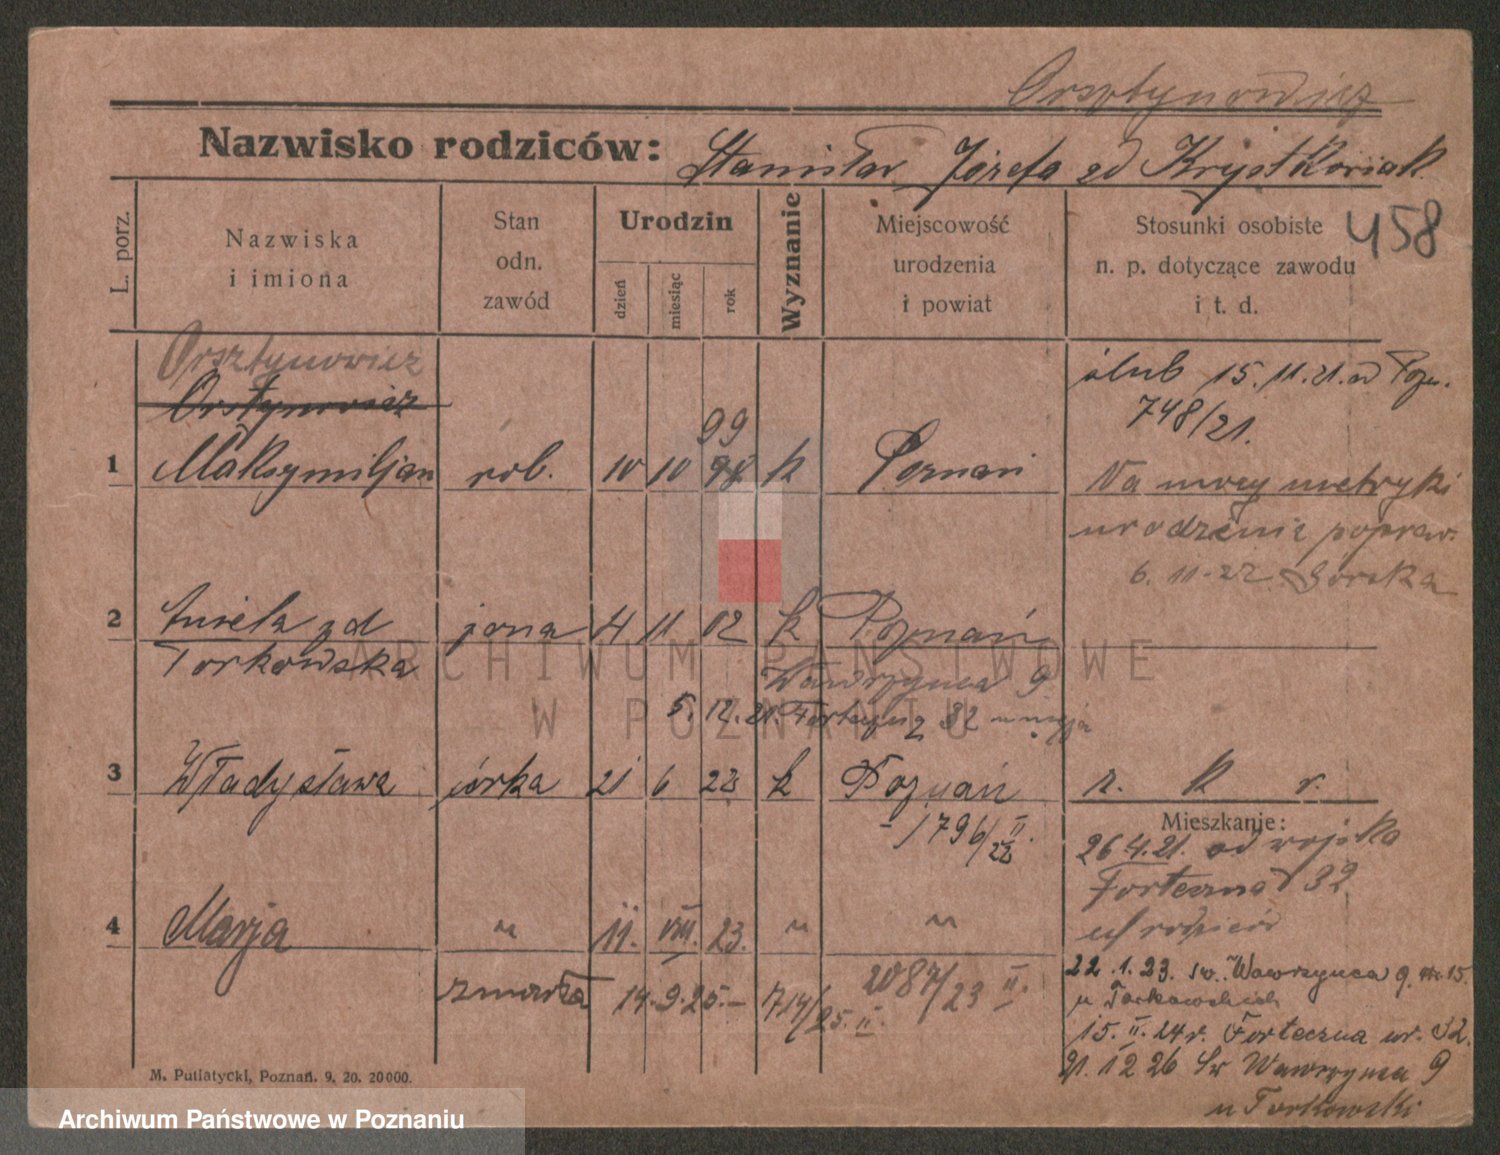 Orsztynowicz
Nazwisko rodziców: Stanisław Józefa zd Krystkowiak
458
L. porz.
Nazwiska
i imiona
Stan
odn.
zawód
Urodzin
dzień
miesiąc
rok
Wyznanie
Miejscowość
urodzenia
i powiat
Stosunki osobiste
n. p. dotyczące zawodu
i t. d.
Orsztynowicz
Orstynowicz
1 Maksymiljan rob. 10 10 98 99 k Poznań
ślub 15.11.21. Pozn.
748/21.
Na mocy metryki
urodzenia popraw.
6.11.22 Górska
2 Aniela zd żona 4 11 02 k Poznań
Torkowska
Wawrzynca 9
5.12.21. Forteczna 32
3 Władysława córka 21 6 22 k Poznań r. k. r.
1796/22 II.
4 Marja " 11. VIII. 23. " "
2087/23 II.
zmarła 14.9.25.- 714/25. II.
Mieszkanie:
26.4.21. od wojska
Forteczna 32
u rodziców
22.1.23. św. Wawrzynca 9. m. 15.
u Torkowskich
15. II. 24 r. Forteczna nr. 32.
21.12 26 Św Wawrzynca 9
u Torkowski
M. Putiatycki, Poznań. 9. 20. 20000.
ARCHIWUM PAŃSTWOWE
W POZNANIU
Archiwum Państwowe w Poznaniu